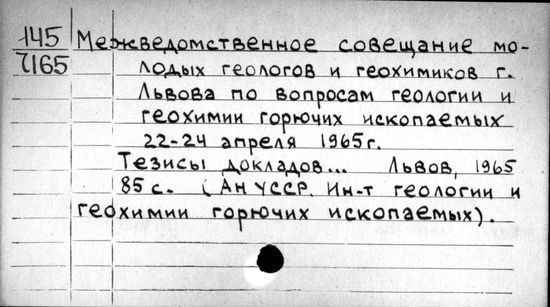 145 Межведомственное совещание мо-
7165 лодых геологов и геохимиков г.
Львова по вопросам геологии и
геохимии горючих ископаемых
22-24 апреля 1965г.
Тезисы докладов... Львов, 1965
85 с. (АН УССР. Ин-т геологии и
геохимии горючих ископаемых).